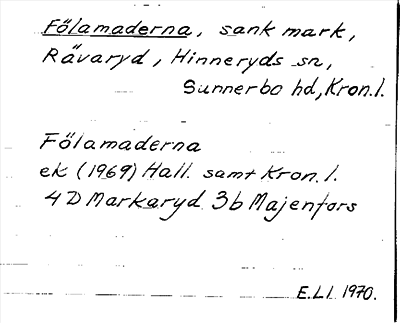 Fölamaderna, sank mark,
Rävaryd, Hinneryds sn,
Sunnerbo hd, Kron.l.
Fölamaderna
ek (1969) Hall. samt Kron.l.
4D Markaryd 3b Majenfors
E.LI 1970.